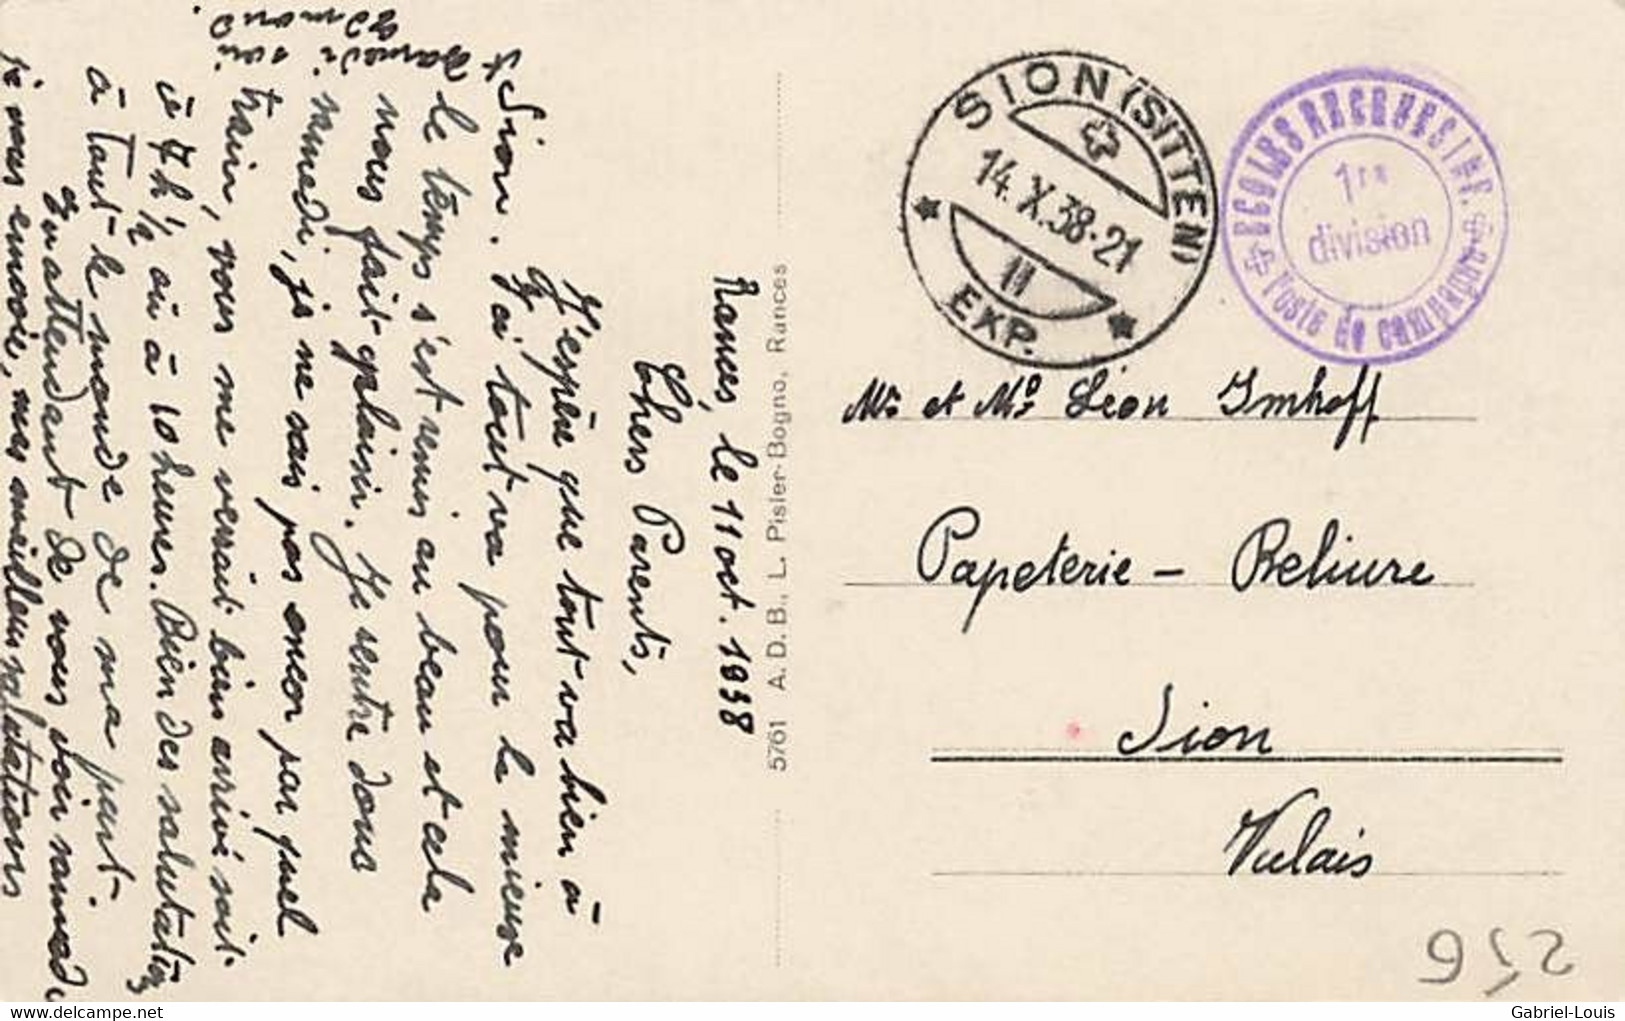 Rances, le 11 oct. 1938
Chers Parents,
J'espère que tout va bien à
Sion. Ici tout va pour le mieux
le temps s'est remis au beau et cela
nous fait plaisir. Je rentre donc
samedi, je ne sais pas encor par quel
train, vous me verrait bien arrivé soit
à 7h ½ ou à 10 heures. Bien des salutations
à tout le monde de ma part.
En attendant de vous voir samedi
je vous envoie, mes meilleurs salutations
5761 A. D. B., L. Pisler-Bogno, Rances
SION (SITTEN)
14.X.38-21
11
EXP.
ECOLES RECRUES INF.
1re
division
Poste de campagne
Mr et Me Léon Imhoff
Papeterie - Reliure
Sion
Valais
256
delcampe.net
Gabriel-Louis